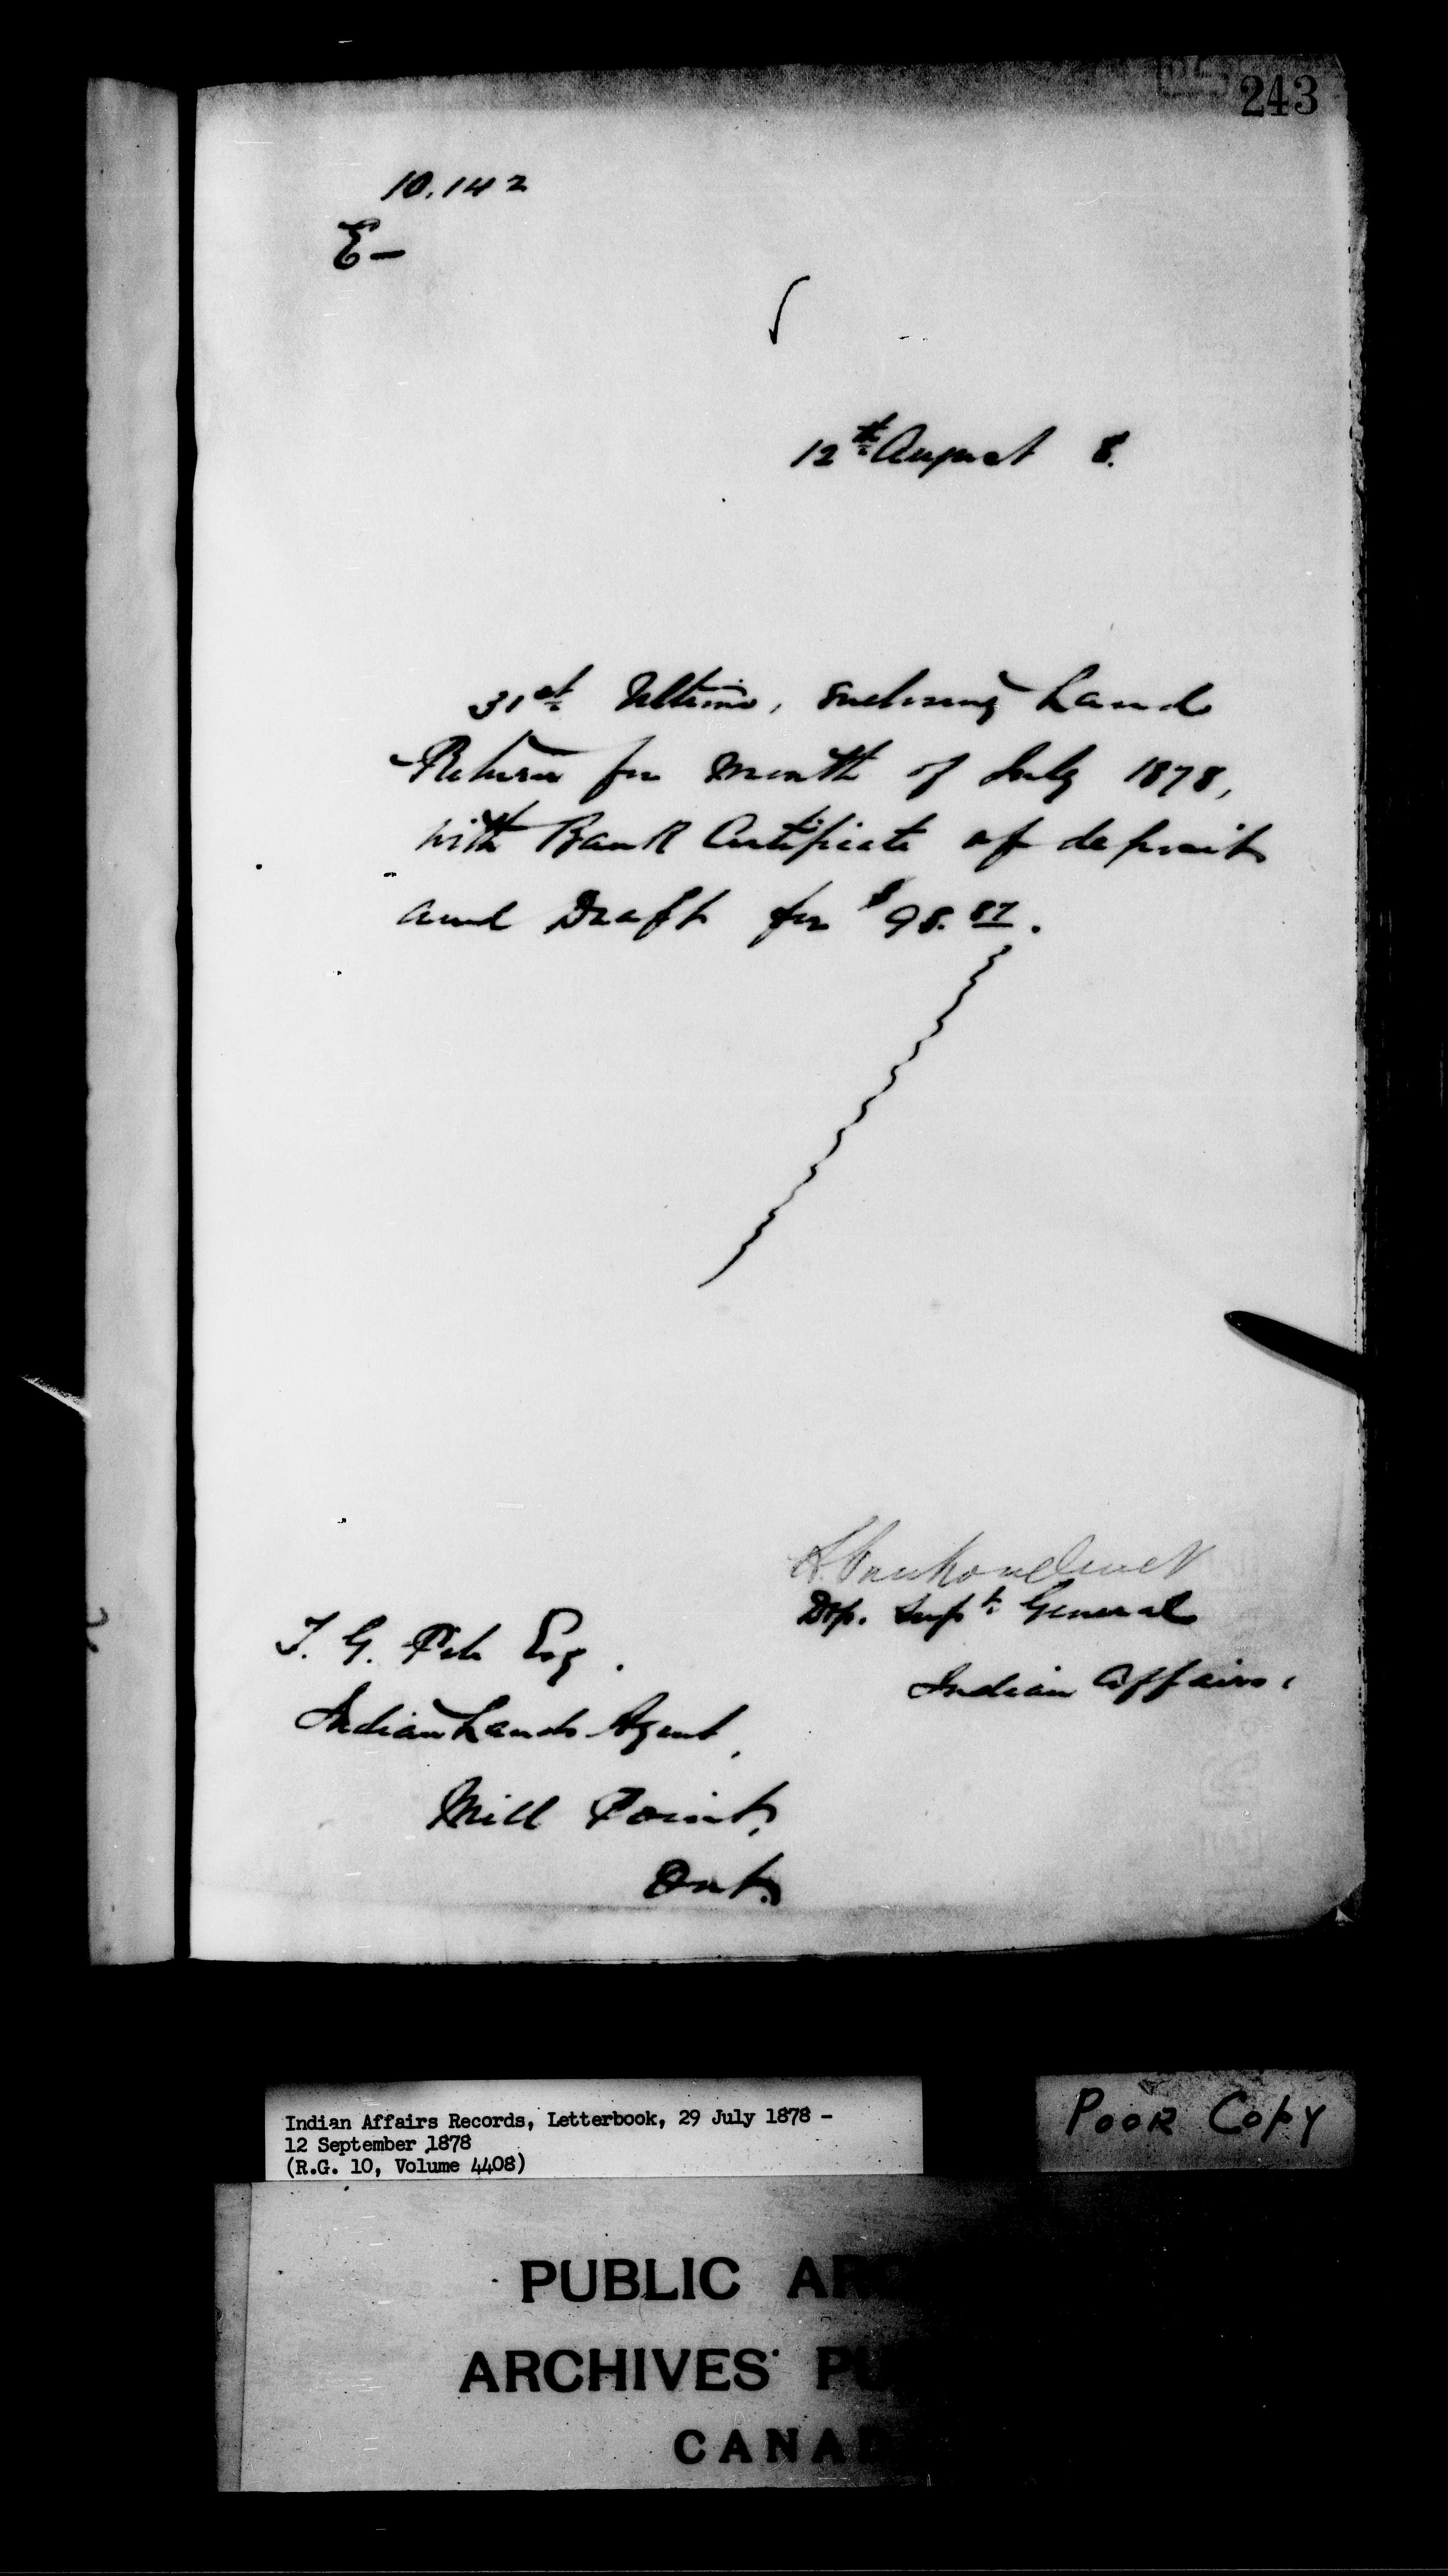 243
10.142
E-
12th August 8.
31st Ultimo, enclosing Land
Return for month of July 1878,
with Bank Certificate of deposit
and Draft for $98.87.
A Vankoughnet
Dep. Supt. General
Indian Affairs,
T. G. Esq.
Indian Lands Agent,
Mill Point,
Ont.
Indian Affairs Records, Letterbook, 29 July 1878 -
12 September 1878
(R.G. 10, Volume 4408)
POOR COPY
PUBLIC ARC
ARCHIVES PU
CANAD